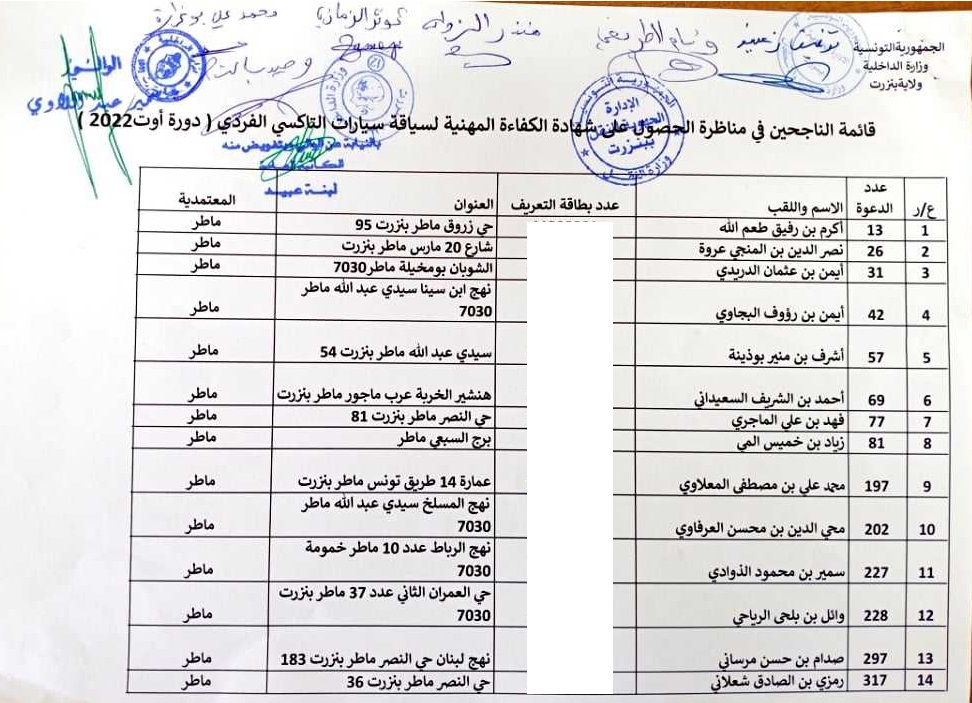 محمد علي بوغرارة
كوثر الزماني
منذر
الجمهورية التونسية
وزارة الداخلية
ولاية بنزرت
الوالي
الإدارة
الجهوية للنقل
ببنزرت
وزارة النقل
قائمة الناجحين في مناظرة الحصول على شهادة الكفاءة المهنية لسياقة سيارات التاكسي الفردي ( دورة أوت 2022 )
بالنيابة عن الوالي وبتفويض منه
لبنة عبيد
ع/ر عدد الدعوة الاسم واللقب عدد بطاقة التعريف العنوان المعتمدية
1 13 أكرم بن رفيق طعم الله حي زروق ماطر بنزرت 95 ماطر
2 26 نصر الدين بن المنجي عروة شارع 20 مارس ماطر بنزرت ماطر
3 31 أيمن بن عثمان الدريدي الشوبان بومخيلة ماطر 7030 ماطر
4 42 أيمن بن رؤوف البجاوي نهج ابن سينا سيدي عبد الله ماطر 7030 ماطر
5 57 أشرف بن منير بوذينة سيدي عبد الله ماطر بنزرت 54 ماطر
6 69 أحمد بن الشريف السعيداني هنشير الخربة عرب ماجور ماطر بنزرت ماطر
7 77 فهد بن علي الماجري حي النصر ماطر بنزرت 81 ماطر
8 81 زياد بن خميس المي برج السبعي ماطر ماطر
9 197 محمد علي بن مصطفى المعلاوي عمارة 14 طريق تونس ماطر بنزرت ماطر
10 202 محي الدين بن محسن العرفاوي نهج المسلخ سيدي عبد الله ماطر 7030 ماطر
11 227 سمير بن محمود الذوادي نهج الرباط عدد 10 ماطر خمومة 7030 ماطر
12 228 وائل بن بلحى الرياحي حي العمران الثاني عدد 37 ماطر بنزرت 7030 ماطر
13 297 صدام بن حسن مرساني نهج لبنان حي النصر ماطر بنزرت 183 ماطر
14 317 رمزي بن الصادق شعلاني حي النصر ماطر بنزرت 36 ماطر